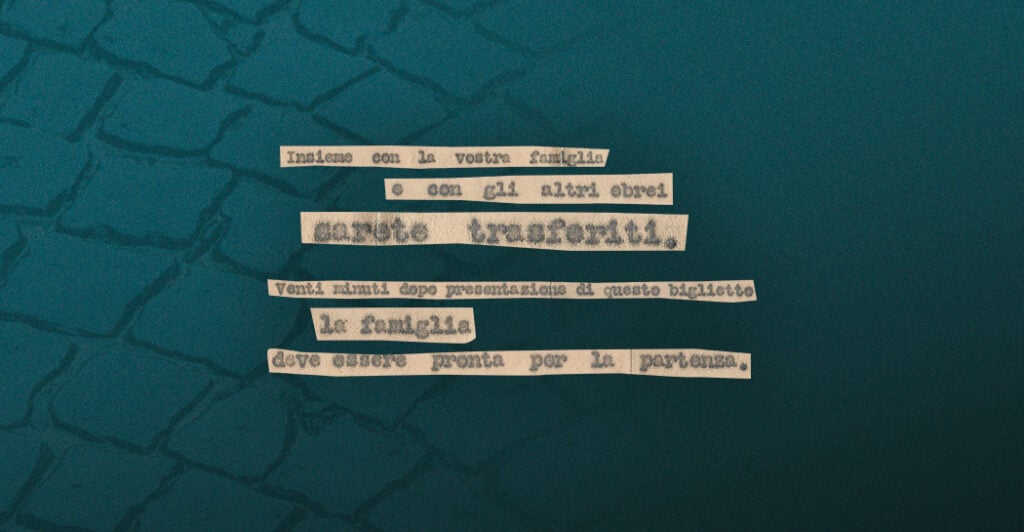 Insieme con la vostra famiglia
e con gli altri ebrei
sarete trasferiti.
Venti minuti dopo presentazione di questo biglietto
la famiglia
deve essere pronta per la partenza.